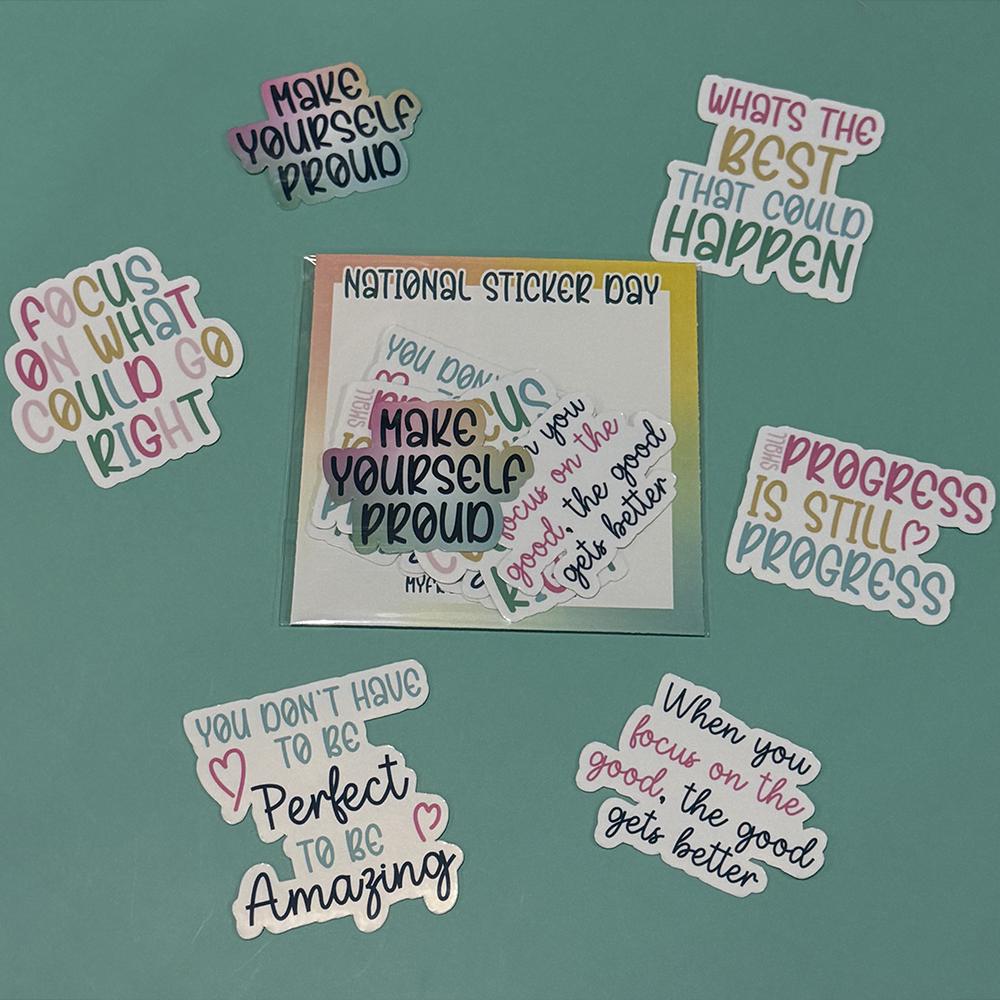 MAKE
YOURSELF
PROUD
WHATS THE
BEST
THAT COULD
HAPPEN
FOCUS
ON WHAT
COULD GO
RIGHT
NATIONAL STICKER DAY
YOU DON'
SMALL
MAKE
YOURSELF
PROUD
you
focus on the
good, the good
gets better
SMALL PROGRESS
IS STILL
PROGRESS
YOU DON'T HAVE
TO BE
Perfect
TO BE
Amazing
When you
focus on the
good, the good
gets better